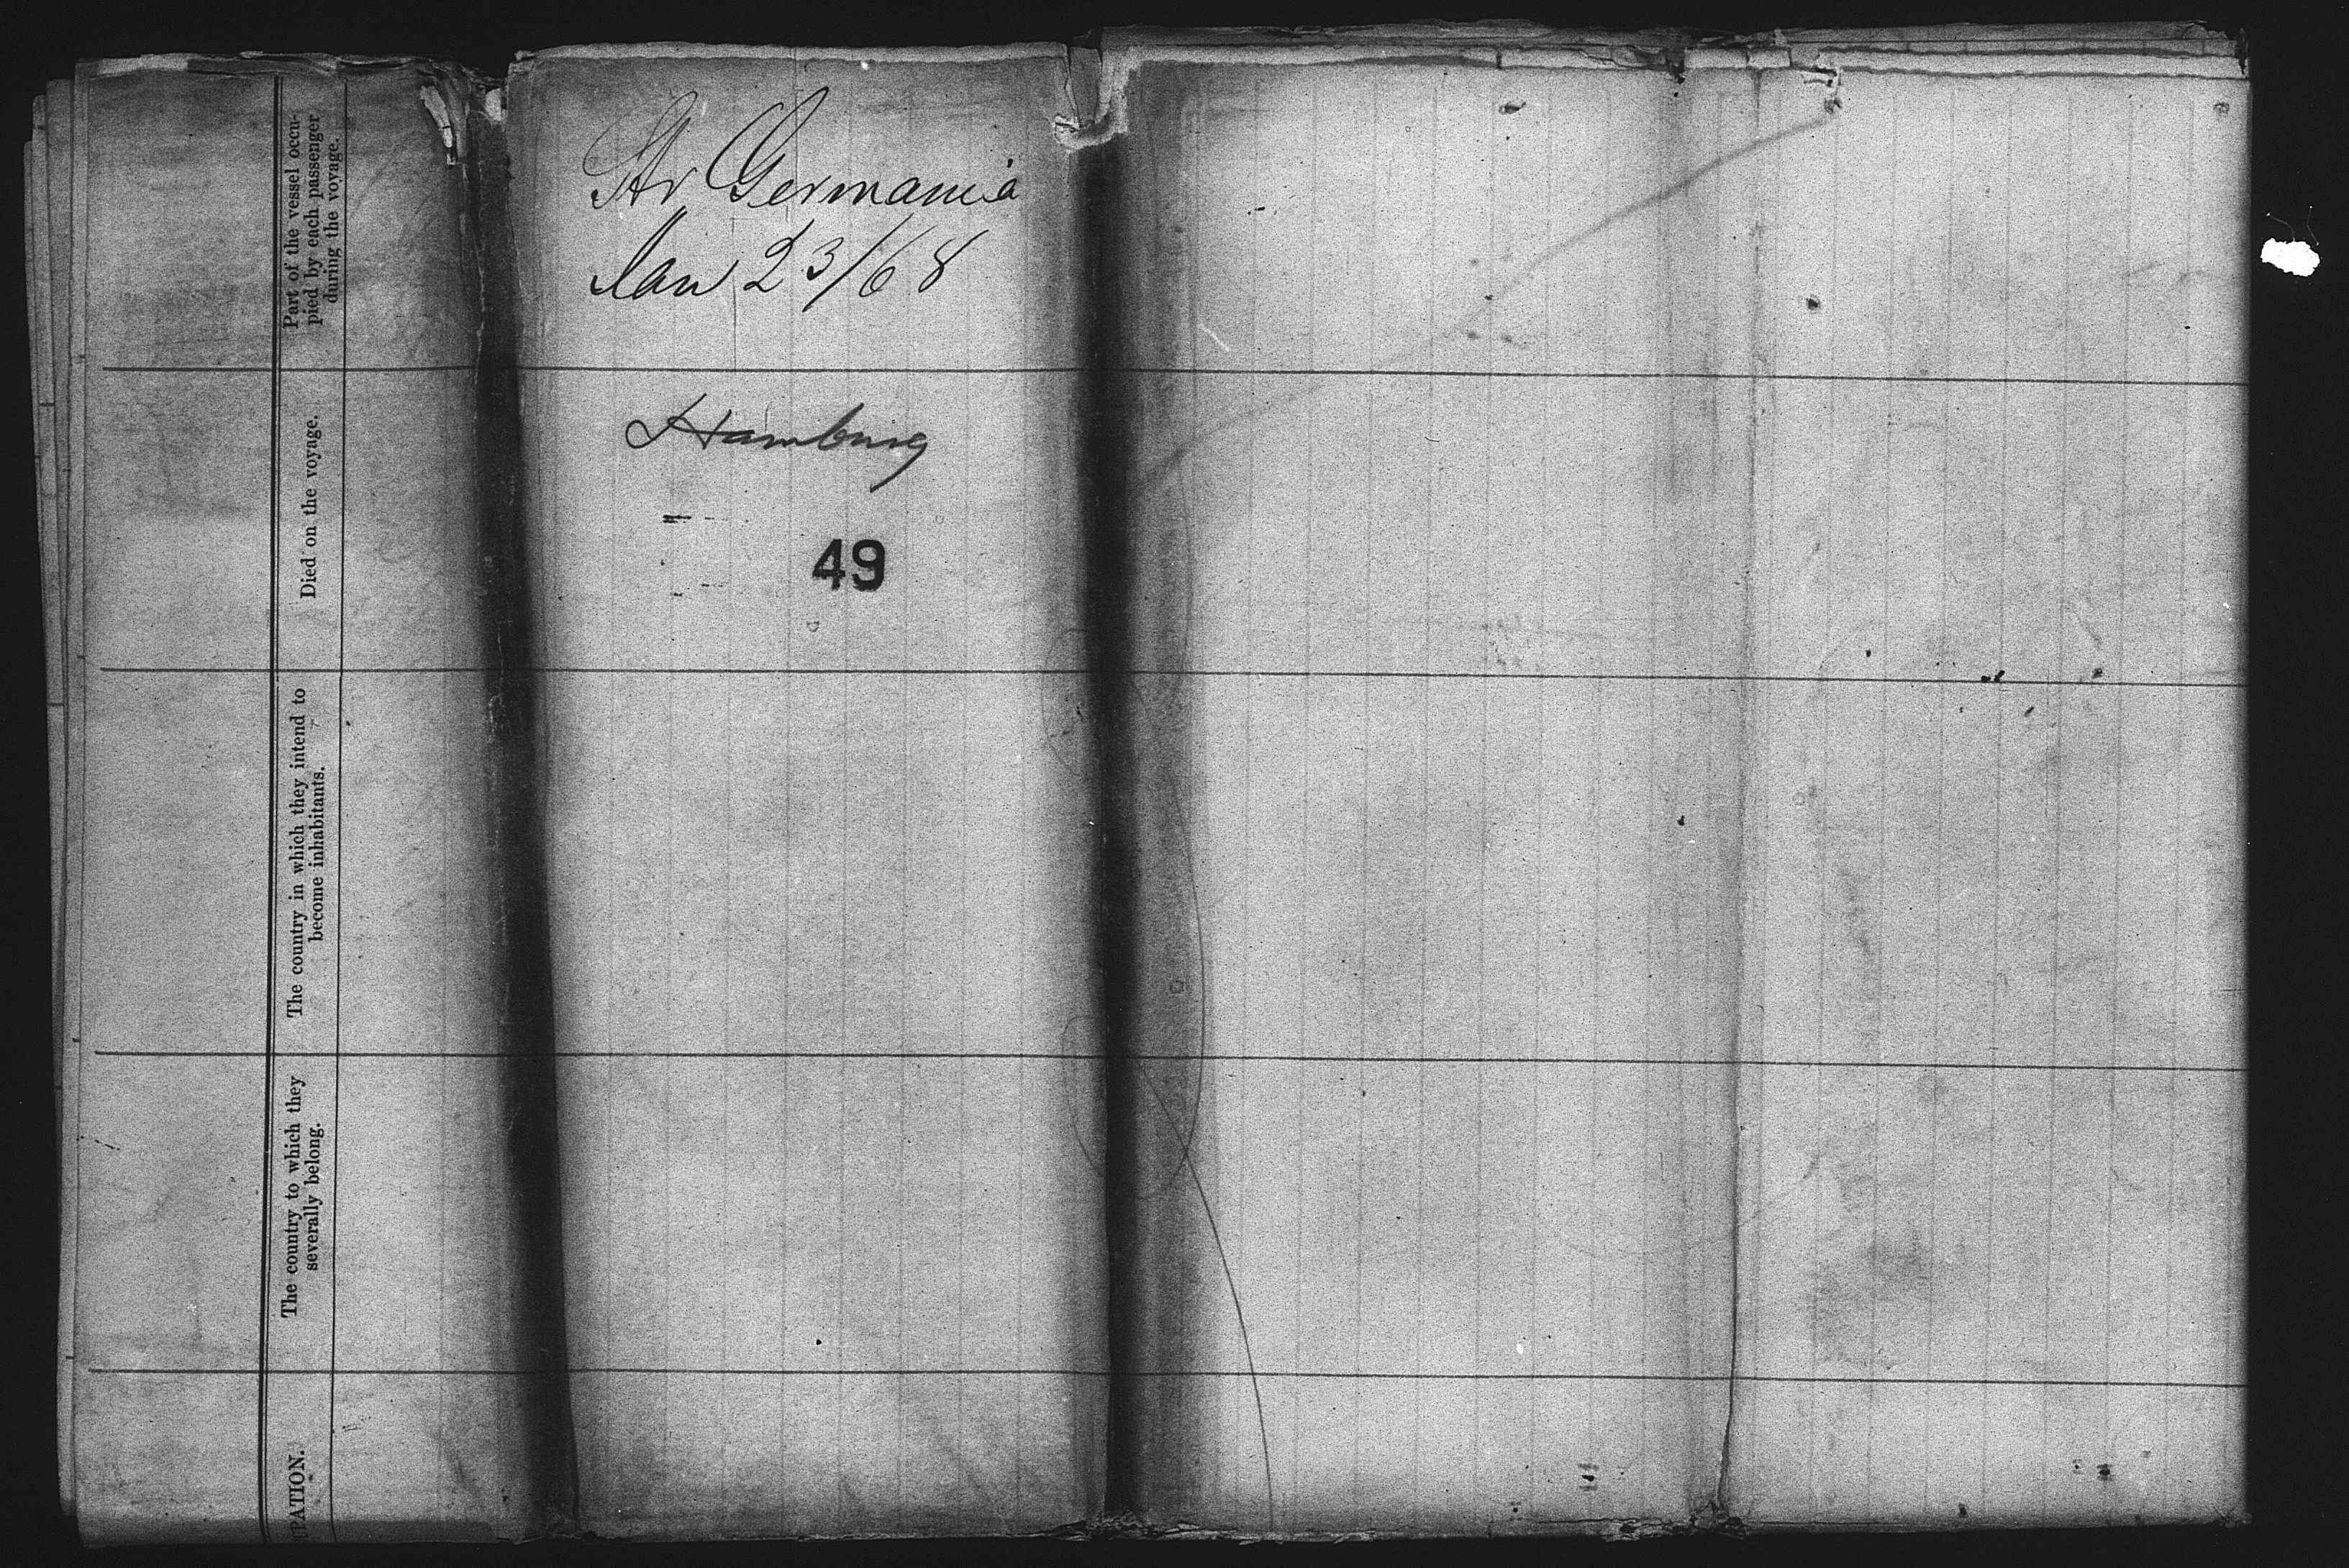 Str Germania
Jan 23/68
Hamburg
49
Part of the vessel occu-
pied by each passenger
during the voyage.
Died on the voyage.
The country in which they intend to
become inhabitants.
The country to which they
severally belong.
UPATION.